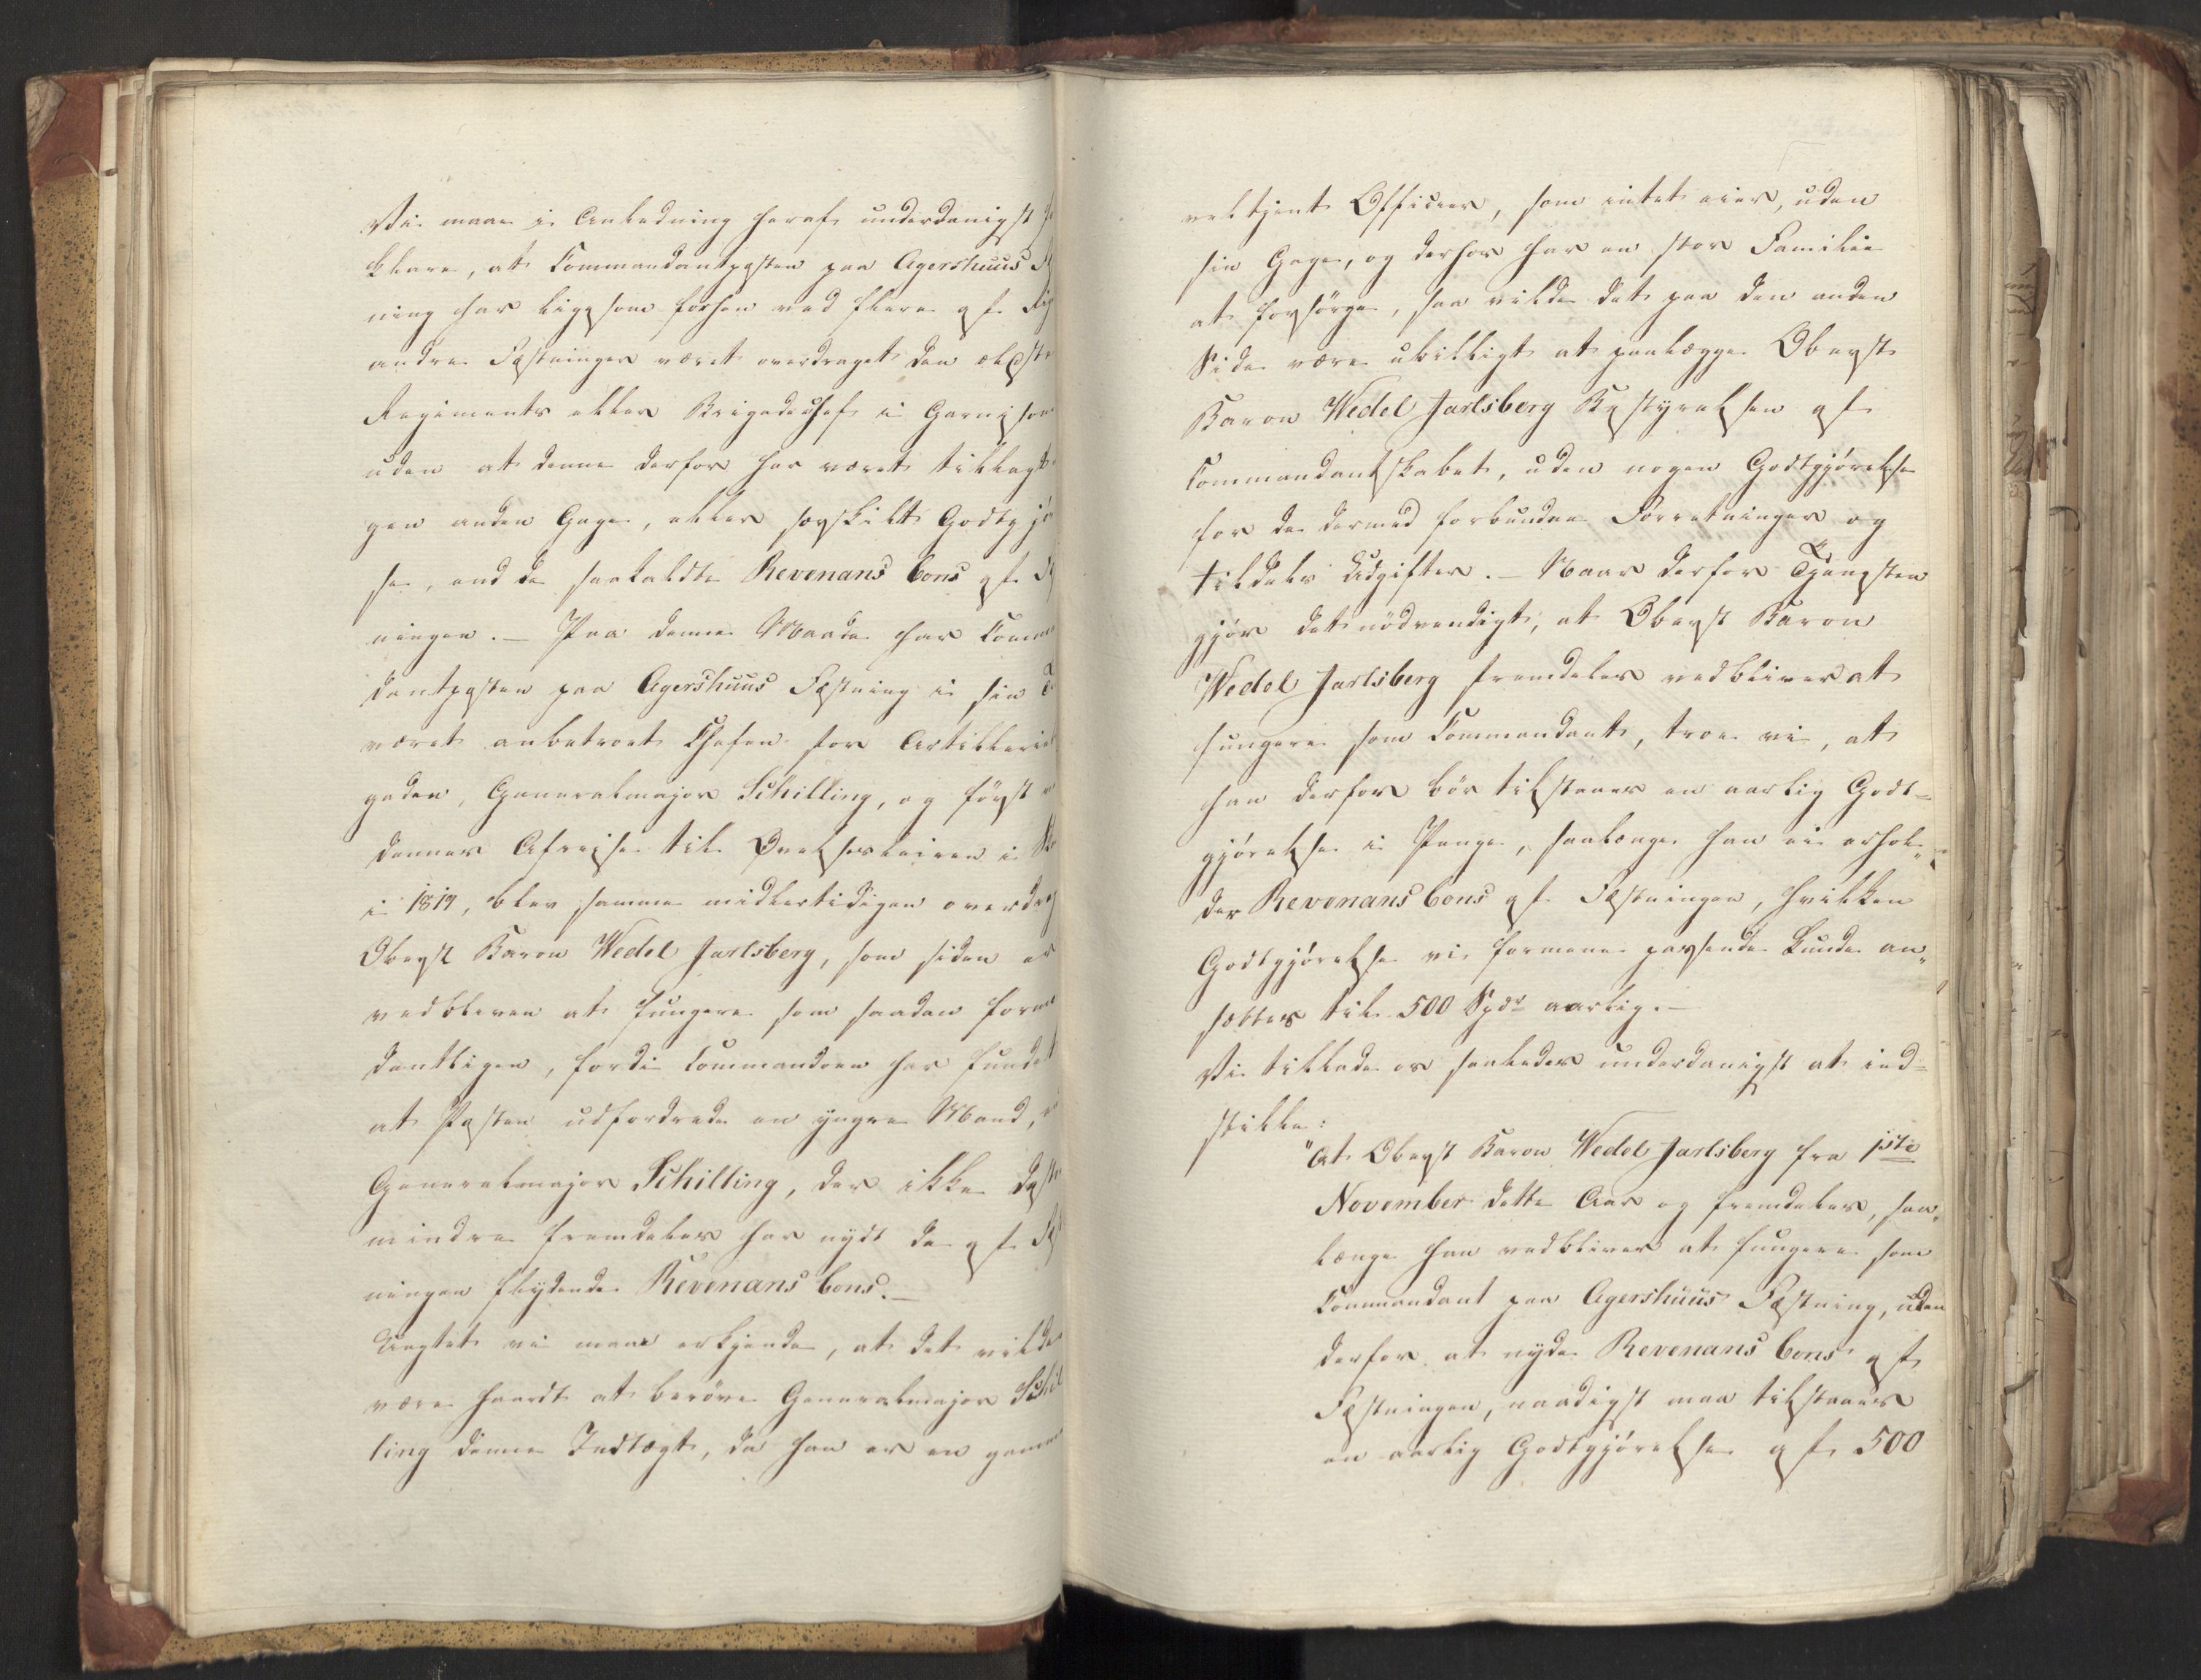 Vi maae i Anledning heraf underdanigst
klare, at Commandantposten paa Agershuus
ning har ligesom forhen ved flere af
andre Fæstninger været overdraget den ældste
Regiments eller Brigadechef i Garnison
uden at denne derfor har været tillagt
gen anden Gage, eller særskilt Godtgjø
se, end de saakaldte Revenans bons af
ningen. – Paa denne Maade har Comman
dantposten paa Agershuus Fæstning i sin
været anbetroet Chefen for Artillerie
gaden, Generalmajor Schilling, og først
dennes Afreise til Øvelsesleiren i
i 1819, blev samme midlertidigen overdrag
Oberst Baron Wedel Jarlsberg, som siden er
vedbleven at fungere som saadan
dantligen, fordi Commandoen har fundet
at Posten udfordrede en yngre Mand,
Generalmajor Schilling, der ikke desto
mindre fremdeles har nydt de af
ningen flydende Revenans bons. –
Uagtet vi maae erkjende, at det vilde
være haardt at berøve Generalmajor Schil
ling denne Indtægt, da han er en gammel
veltjent Officier, som intet eier, uden
sin Gage, og derhos har en stor Familie
at forsørge, saa vilde det paa den anden
Side være ubilligt at paalægge Oberst
Baron Wedel Jarlsberg Bestyrelsen af
Commandantskabet, uden nogen Godtgjørelse
for de dermed forbundne Forretninger og
tildels Udgifter. – Naar derfor Tjenesten
gjør det nødvendigt, at Oberst Baron
Wedel Jarlsberg fremdeles vedbliver at
fungere som Commandant, troe vi, at
han derfor bør tilstaaes en aarlig Godt-
gjørelse i Penge, saalænge han ei erhol-
der Revenans bons af Fæstningen, hvilken
Godtgjørelse vi formene passende kunde an„
sættes til 500 Spdr aarlig. –
Vi tillade os saaledes underdanigst at ind-
stille:
"At Oberst Baron Wedel Jarlsberg fra 1ste
November dette Aar og fremdeles, saa„
længe han vedbliver at fungere som
Commandant paa Agershuus Fæstning, uden
derfor at nyde Revenans bons af
Fæstningen, naadigst maa tilstaaes
en aarlig Godtgjørelse af 500